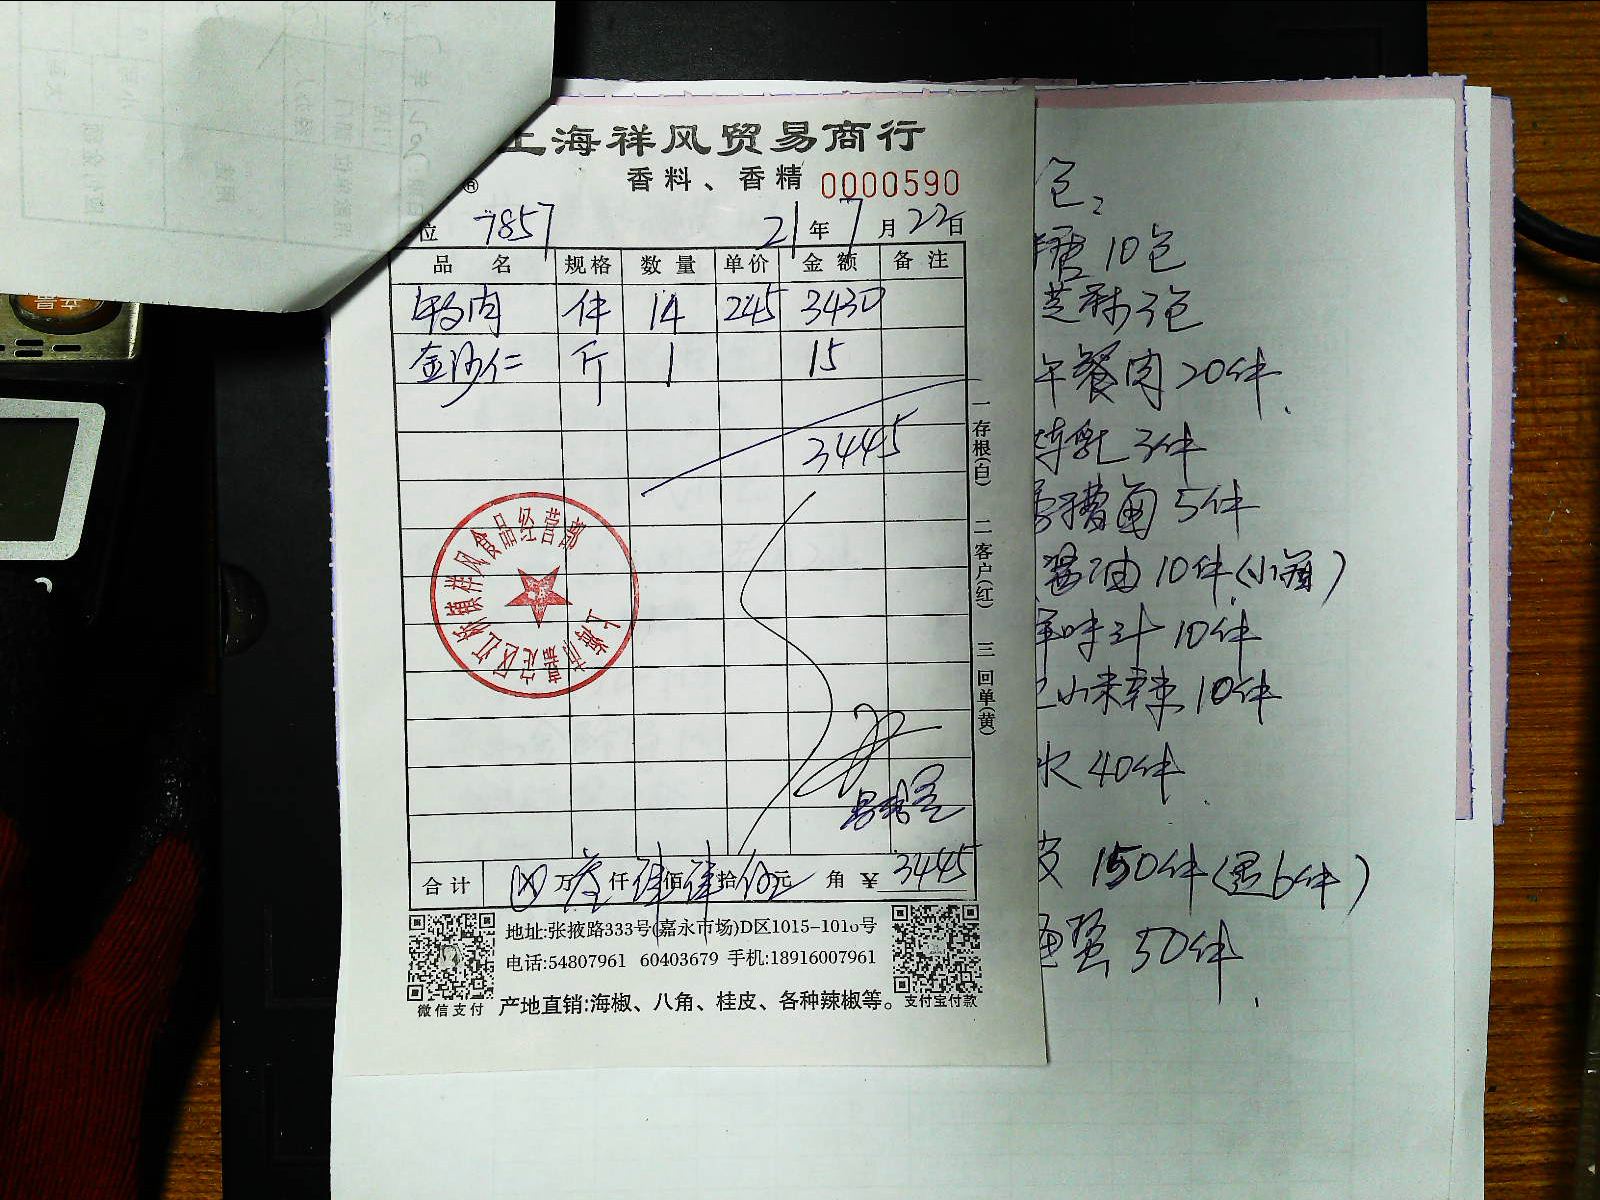 上海祥风贸易商行
香料、香精 0000590
®
位 7857 21年7月22日
品名 规格 数量 单价 金额 备注
鸭肉 件 14 245 3430
金沙仁 斤 1 15
3445
一存根(白) 二客户(红) 三回单(黄)
上海市嘉定区江桥镇祥风食品经营部
合计 万叁仟肆佰肆拾伍元 角 ¥3445
地址:张掖路333号(嘉永市场)D区1015-1016号
电话:54807961 60403679 手机:18916007961
产地直销:海椒、八角、桂皮、各种辣椒等。
微信支付
支付宝付款
包
糖 10包
芝麻 3包
午餐肉 20件
炼乳 3件
糟鱼 5件
酱油 10件(小瓶)
鲜味汁 10件
山未辣 10件
水 40件
150件(退6件)
蛋 50件